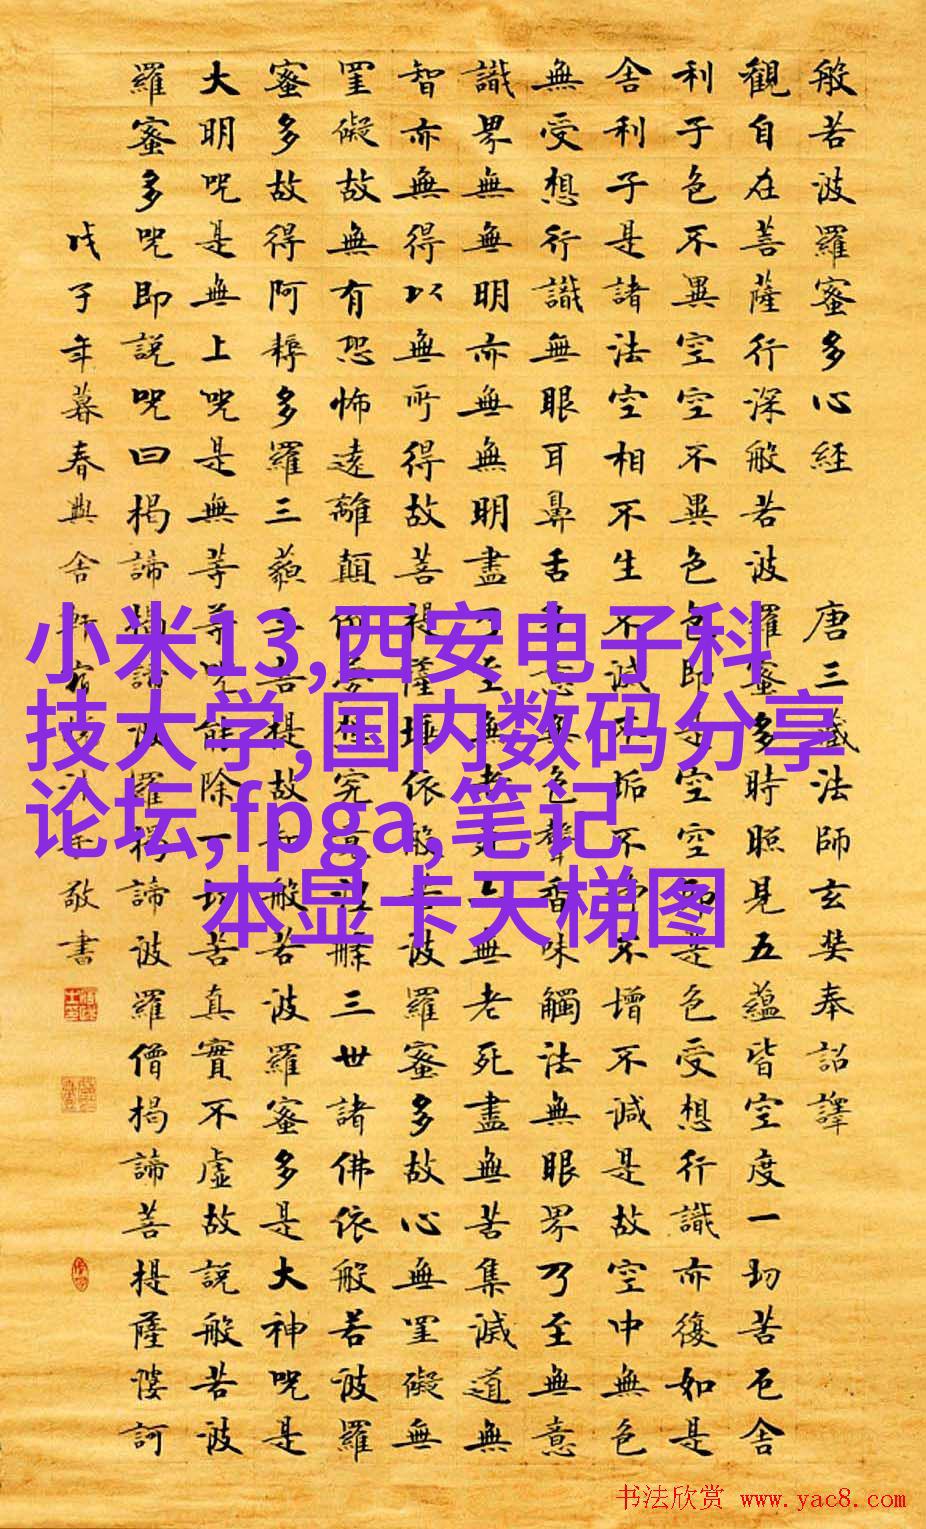 般若波羅蜜多心經 唐三藏法師玄奘奉詔譯
觀自在菩薩行深般若波羅蜜多時照見五蘊皆空度一切苦厄舍
利子色不異空空不異色色即是空空即是色受想行識亦復如是
舍利子是諸法空相不生不滅不垢不淨不增不減是故空中無色
無受想行識無眼耳鼻舌身意無色聲香味觸法無眼界乃至無意
識界無無明亦無無明盡乃至無老死亦無老死盡無苦集滅道無
智亦無得以無所得故菩提薩埵依般若波羅蜜多故心無罣礙無
罣礙故無有恐怖遠離顛倒夢想究竟涅槃三世諸佛依般若波羅
蜜多故得阿耨多羅三藐三菩提故知般若波羅蜜多是大神呪是
大明呪是無上呪是無等等呪能除一切苦真實不虛故說般若波
羅蜜多呪即說呪曰揭諦揭諦波羅揭諦波羅僧揭諦菩提薩婆訶
戊子年暮春興舍軒敬書
小米13,西安电子科
技大学,国内数码分享
论坛,fpga,笔记
本显卡天梯图
书法欣赏 www.yac8.com